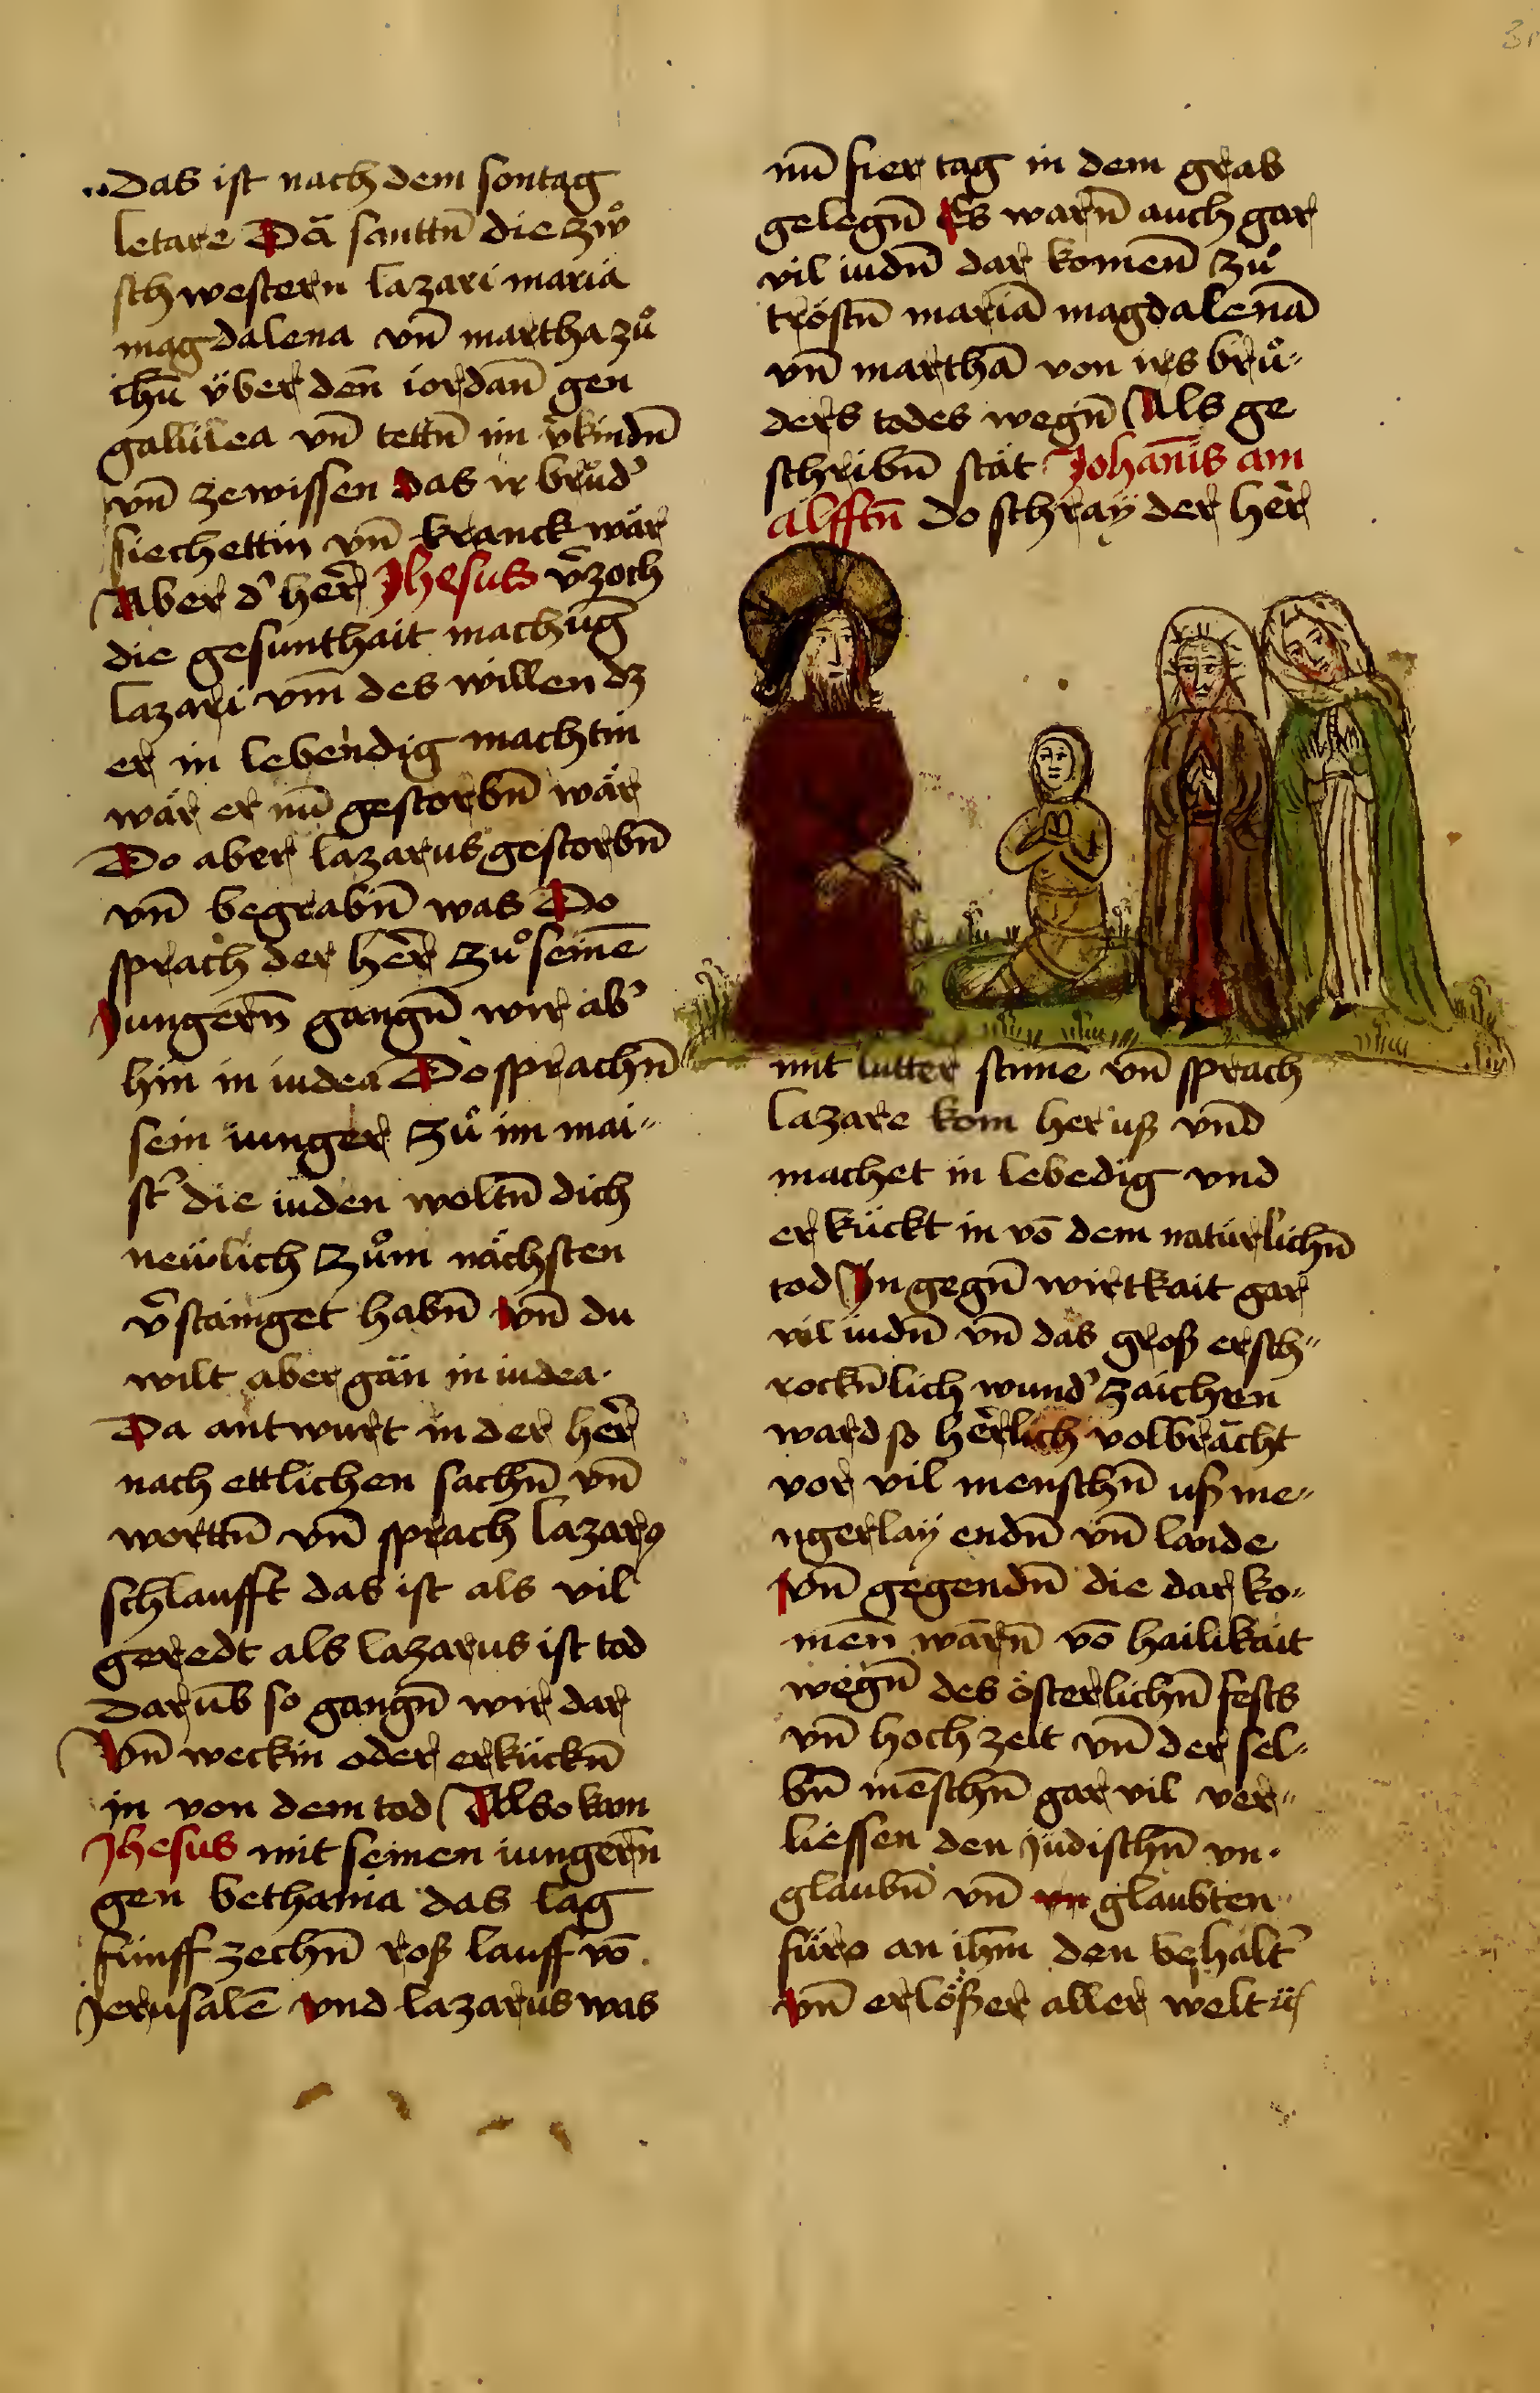 Das ist nach dem sontag
letare Dā santtn̄ die zwů
schwestern lazari maria
magdalena vn̄ martha zů
ihū ÿber den̄ iordan̄ gen
gallilea vn̄ tettn̄ im v̄kindn̄
vn̄ zewissen das ir brůd’
siechettin vn̄ kranck wär
Aber d’ her̄ Jhesus v̄zoch
die gesunthait machūg
lazari vm̄ des willen dz
er in lebendig machtin
wär er nū gestorbn̄ wär
Do aber lazarus gestorbn̄
vn̄ begrabn̄ was Do
sprach der her̄ zů seinē
Jungern̄ gangn̄ wir ab’
hin in iudea Do sprachn̄
sein iunger zů im mai〃
st’ die iuden woltn̄ dich
neẅlich zům nächsten
v̄stainget habn̄ vn̄ du
wilt aber gän in iudea.
Da antwurt in der her̄
nach ettlichen sachn̄ vn̄
worttn̄ vn̄ sprach lazar9
schlaufft das ist als vil
geredt als lazarus ist tod
darūb so gangn̄ wir dar
Vn̄ weckin oder erkückn̄
in von dem tod Also kam
Jhesus mit seinen iungern̄
gen bethania das lag
fünffzechn̄ roß lauff vō
Jerusalē vnd lazarus was
nū fier tag in dem grab
gelegn̄ Es warn̄ auch gar
vil iudn̄ dar komen̄ zů
tröstn̄ mariā magdalenā
vn̄ marthā von irs brů〃
ders todes wegn̄ Als ge
schribn̄ stät Johan̄is am
alfftn̄ do schraÿ der her̄
mit lutter stimē vn̄ sprach
lazare kom heruß vnd
machet in lebedig vnd
erkückt in vō dem natürlichn̄
tod In gegn̄wirtkait gar
vil iudn̄ vn̄ das groß ersch〃
rockn̄lich wund’zaichen
ward so her̄lich volbrächt
vor vil menschn̄ uß me〃
ngerlaÿ endn̄ vn̄ lande
vn̄ gegendn̄ die dar ko〃
men̄ warn̄ vō hailikait
wegn̄ des österlichn̄ fests
vn̄ hochzeit vn̄ der sel〃
bn̄ mēschn̄ gar vil ver〃
liessen den jüdischn̄ vn.
glaubn̄ vn̄ vn glaubten
füro an ihm̄ den behalt’
vn̄ erlößer aller welt